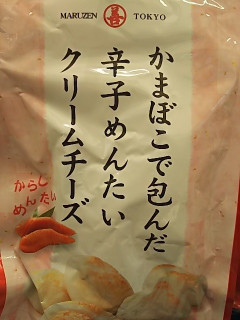 MARUZEN 善 TOKYO
かまぼこで包んだ
辛子めんたい
クリームチーズ
からし
めんたい